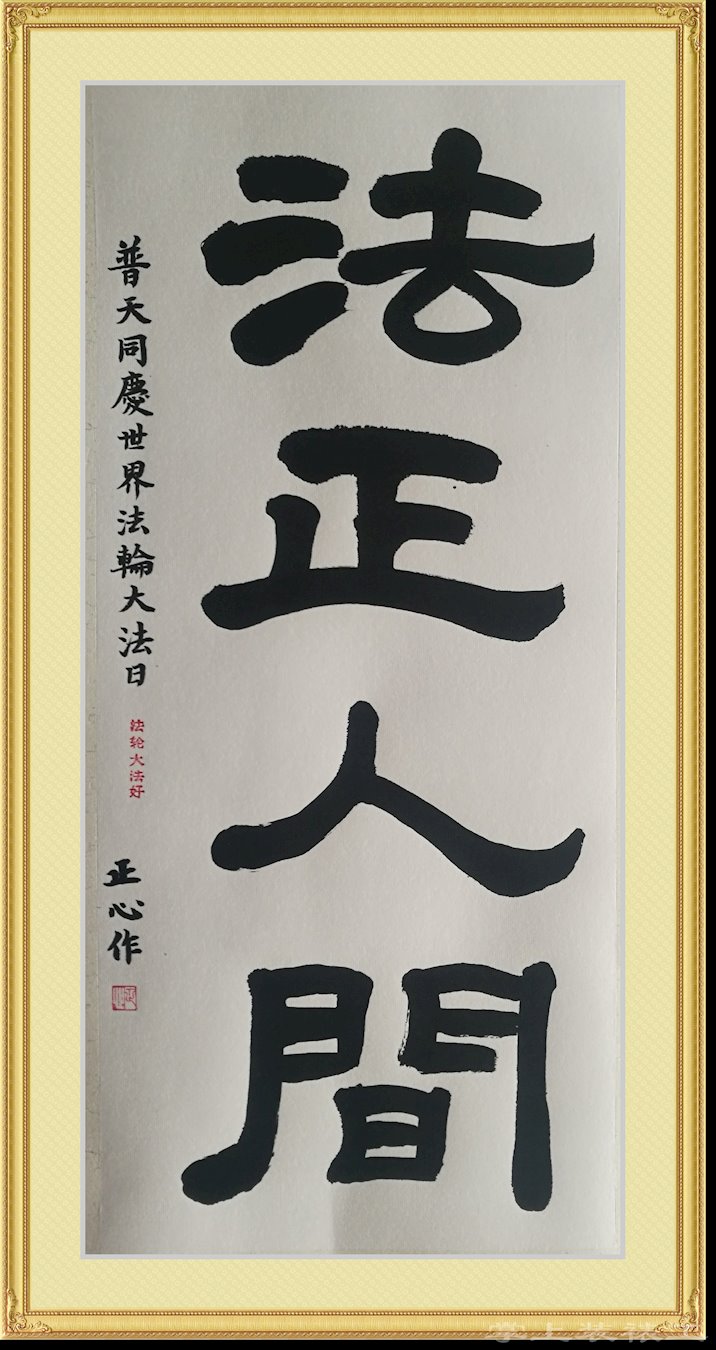 法正人間
普天同慶世界法輪大法日
法轮大法好
正心作
掌上装裱